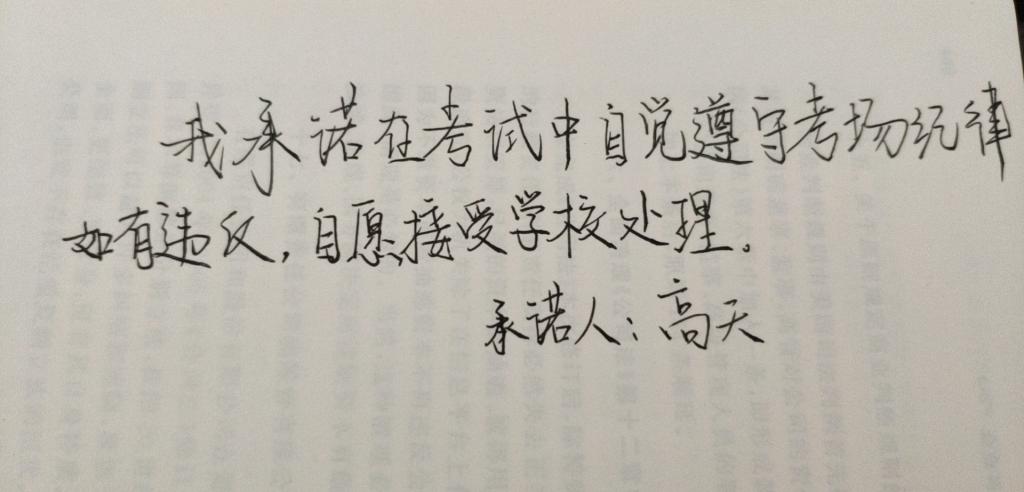 我承诺在考试中自觉遵守考场纪律
如有违反，自愿接受学校处理。
承诺人：高天